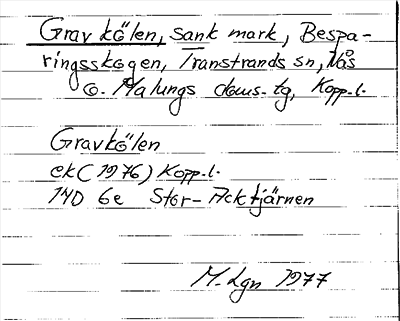 Gravkölen, sank mark, Bespa-
ringsskogen, Transtrands sn, Nås
o. Malungs doms. tg, Kopp. l.
Gravkölen
ek (1976) Kopp. l.
14D 6e Stor-Acktjärnen
M-Lgn 1977